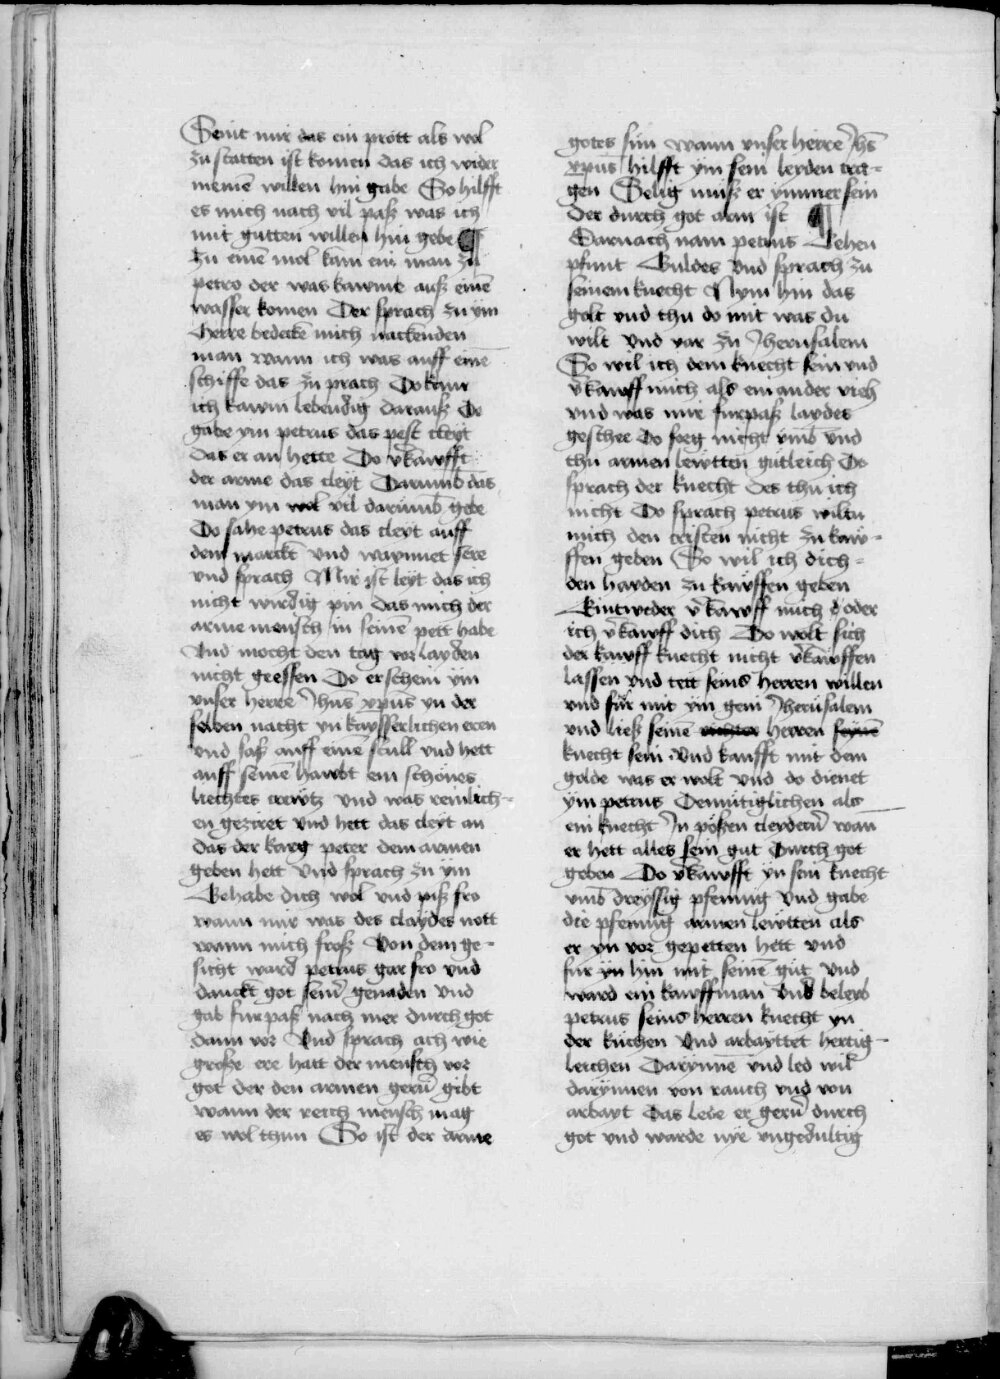 Seint mir das ein prott als wol
zu statten ist komen das ich wider
meinē willen hin gabe So hilfft
es mich nach vil paß was ich
mit gutten willen hin gebe ¶
Zu einē mol kam ein man zu
petro der was kawme auß einē
wasser komen Der sprach zu ym
Herre bedecke mich nackenden
man wann ich was auff eine
schiffe das zu prach Do kam
ich kawm lebendig darauß Do
gabe ym petrus das pest cleyt
das er an hette Do v̉kawfft
der arme das cleyt Darumb das
man ym wol vil darumb gebe
Do sahe petrus das cleyt auff
dem marckt vnd waynnet sere
vnd sprach Mir ist leyt das ich
nicht wirdig pin das mich der
arme mensch in seinē pett habe
Vnd mocht den tag vor layden
nicht geessen Do erschein ym
vnser herre Jhūs xpūs yn der
selben nacht yn kaysserlichen eren
vnd saß auff eine stull vnd hett
auff seinē hawbt ein schönes
liechtes crewtz vnd was reinlich-
en geziret vnd hett das cleyt an
das der karg peter dem armen
geben hett Vnd sprach zu ym
Gehabe dich wol vnd piß fro
wann mir was des claydes nott
wann mich froß Von dem ge-
sicht ward petrus gar fro vnd
danckt got seinr̉ genaden vnd
gab furpaß nach mer durch got
dann vor Vnd sprach ach wie
große ere hatt der mensch vor
got der den armen gern̄ gibt
wann der reich mensch mag
es wol thun So ist der arme
gotes sun wann vnser herre Jhs̄
xpūs hilfft ym sein leyden tra-
gen Selig muß er ymmer sein
der durch got arm ist ¶
Darnach nam petrus Zehen
pfunt Guldes vnd sprach zu
seinem knecht Nym hin das
golt vnd thu do mit was du
wilt vnd var zu Jherusalem
So wil ich dem knecht sein vnd
v̉kawff mich als ein ander vieh
vnd was mir furpaß laydes
geschee Do sorg nicht vmb vnd
thu armen lewtten gutleich Do
sprach der knecht des thu ich
nicht Do sprach petrus wiltu
mich den cristen nicht zu kaw-
ffen geben So wil ich dich-
den hayden zu kawffen geben
Eintweder v̉kawff mich oder
ich v̉kawff dich Do wolt sich
der kawff knecht nicht v̉kawffen
lassen vnd tett seins herren willen
vnd fur mit ym gein Jherusalem
vnd ließ seinē herren
knecht sein Vnd kaufft mit dem
golde was er wolt vnd do dienet
ym petrus Demutiglichen als
ein knecht Jn pößen cleydern̄ wan̄
er hett alles sein gut Durch got
geben Do v̉kawfft yn sein knecht
vmb dreyssig pfennig vnd gabe
die pfennig armen lewtten als
er yn vor gepetten hett vnd
fur yn hin mit seinē gut vnd
ward ein kawffman Vnd beleib
petrus seins herren knecht yn
der kuchen Vnd arbayttet hertig-
leichen Darynnē vnd led wil
darynnen von rauch vnd von
arbayt Das lede er gern̄ durch
got vnd warde nye vngedultig